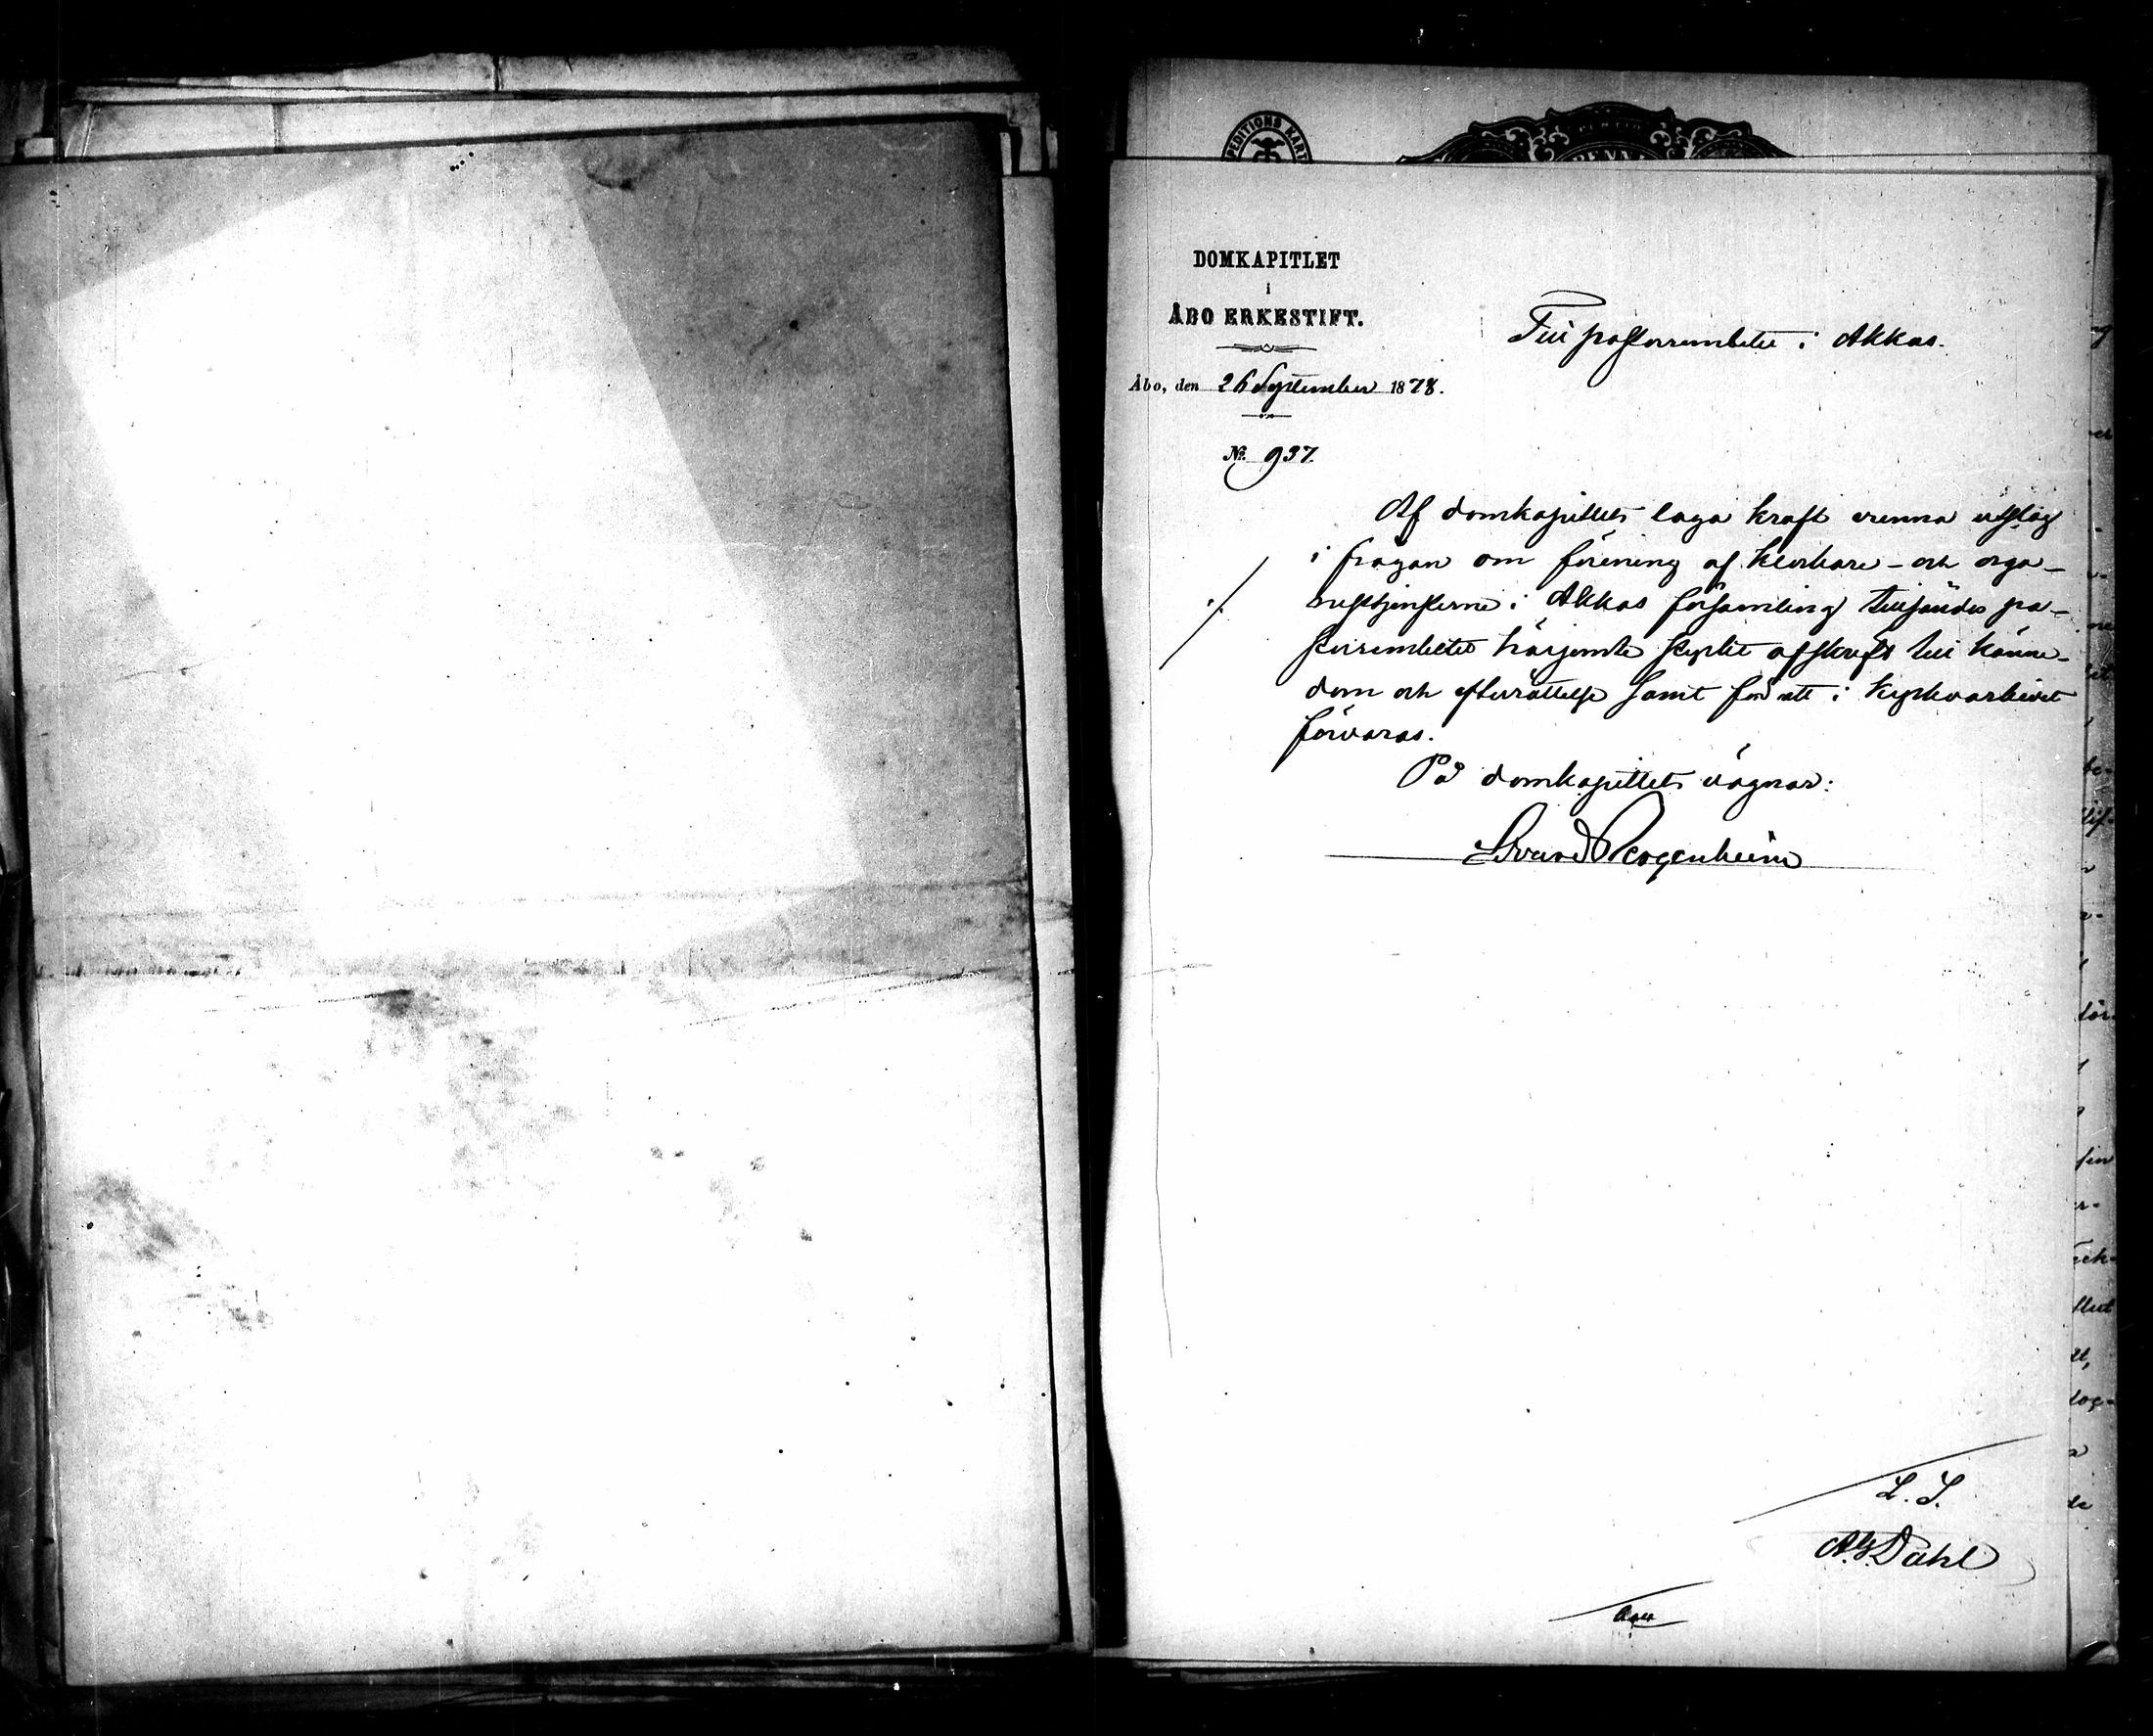 PEDITIONS KART
DOMKAPITLET
i
ÅBO ERKESTIFT.
Till pastorsembetet i Akkas.
Åbo, den 26 September 1878.
№ 937
Af domkapitlets laga kraft vunna utslag
i frågan om förening af klockare- och orga-
nisttjensterne i Akkas församling tillsändes pa-
storsembetet härjemte styrkt afskrift till känne-
dom och efterrättelse samt för att i kyrkoarkivet
förvaras.
På domkapitlets vägnar:
Edvard Bergenheim
L. S.
A. G. Dahl